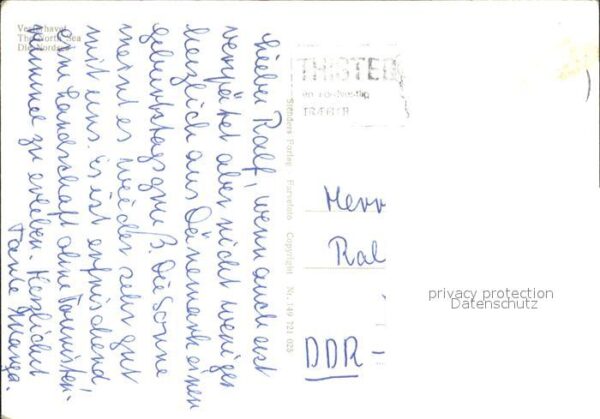 Vesterhavet
The North Sea
Die Nordsee
Lieber Ralf, wenn auch erst
verspätet aber nicht weniger
herzlich aus Dänemark einen
Geburtstagsgruß. Die Sonne
meint es wieder sehr gut
mit uns. Es ist erfrischend,
eine Landschaft ohne Touristen-
zu erleben. Herzlichst
Tante
Stenders Forlag Farvefoto Copyright Nr. 149 121 025
THISTED
Herr
Ral
DDR-
privacy protection
Datenschutz